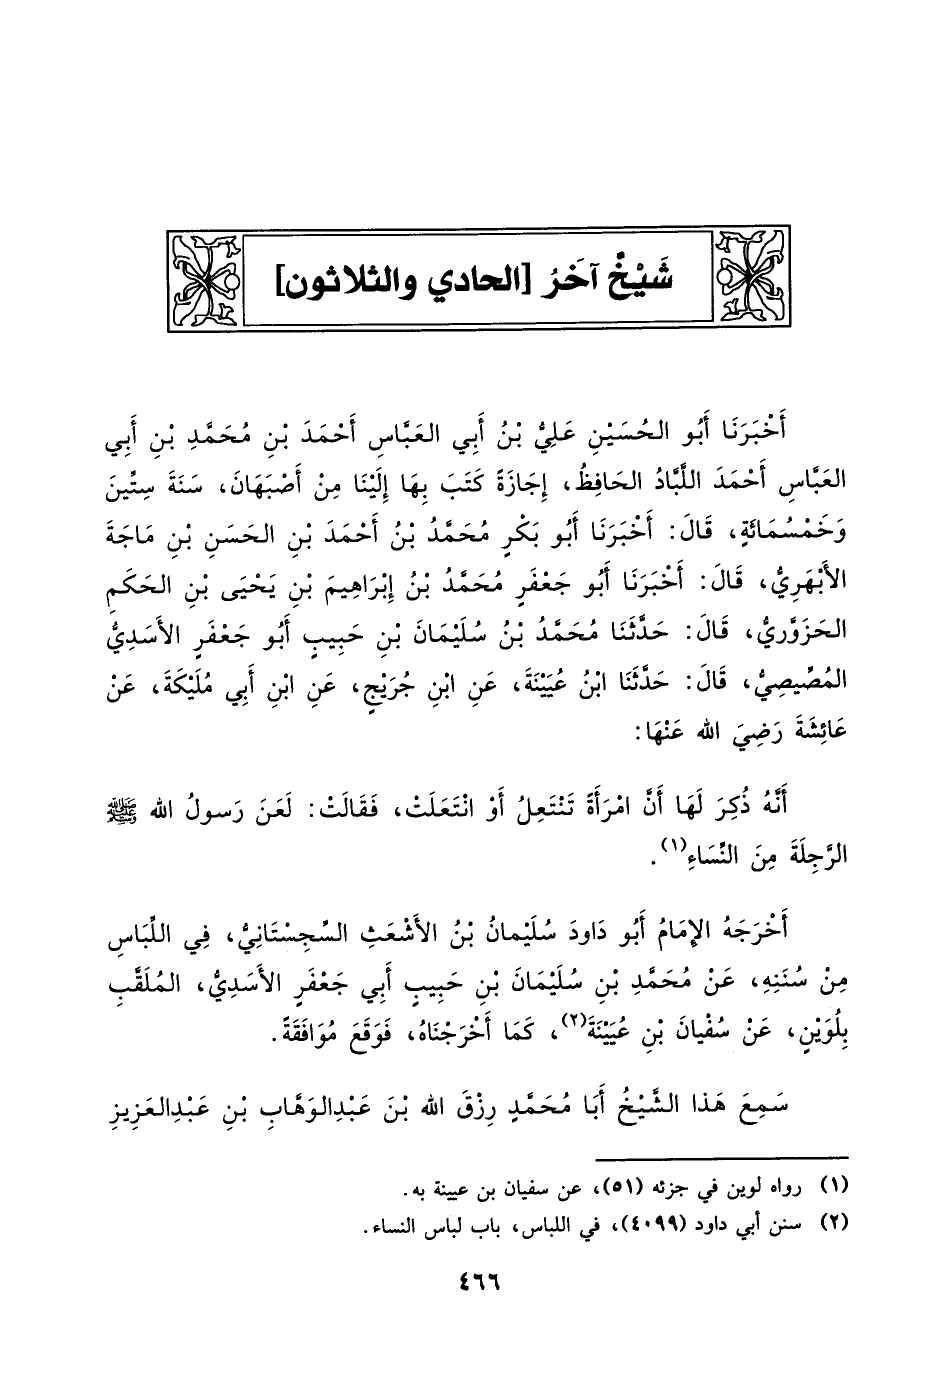 شَيْخٌ آخَرُ [الحادي والثلاثون]
أَخْبَرَنَا أَبُو الحُسَيْنِ عَلِيُّ بْنُ أَبِي العَبَّاسِ أَحْمَدَ بْنِ مُحَمَّدِ بْنِ أَبِي
العَبَّاسِ أَحْمَدَ اللَّبَّادُ الحَافِظُ، إِجَازَةً كَتَبَ بِهَا إِلَيْنَا مِنْ أَصْبَهَانَ، سَنَةَ سِتِّينَ
وَخَمْسُمَائَةٍ، قَالَ: أَخْبَرَنَا أَبُو بَكْرٍ مُحَمَّدُ بْنُ أَحْمَدَ بْنِ الحَسَنِ بْنِ مَاجَةَ
الأَبْهَرِيُّ، قَالَ: أَخْبَرَنَا أَبُو جَعْفَرٍ مُحَمَّدُ بْنُ إِبْرَاهِيمَ بْنِ يَحْيَى بْنِ الحَكَمِ
الحَزَوَّرِيُّ، قَالَ: حَدَّثَنَا مُحَمَّدُ بْنُ سُلَيْمَانَ بْنِ حَبِيبٍ أَبُو جَعْفَرٍ الأَسَدِيُّ
المُصِّيصِيُّ، قَالَ: حَدَّثَنَا ابْنُ عُيَيْنَةَ، عَنِ ابْنِ جُرَيْجٍ، عَنِ ابْنِ أَبِي مُلَيْكَةَ، عَنْ
عَائِشَةَ رَضِيَ الله عَنْهَا:
أَنَّهُ ذُكِرَ لَهَا أَنَّ امْرَأَةً تَنْتَعِلُ أَوْ انْتَعَلَتْ، فَقَالَتْ: لَعَنَ رَسولُ الله ﷺ
الرَّجِلَةَ مِنَ النِّسَاءِ(١).
أَخْرَجَهُ الإِمَامُ أَبُو دَاودَ سُلَيْمانُ بْنُ الأَشْعَثِ السِّجِسْتَانِيُّ، فِي اللِّبَاسِ
مِنْ سُنَنِهِ، عَنْ مُحَمَّدِ بْنِ سُلَيْمَانَ بْنِ حَبِيبٍ أَبِي جَعْفَرٍ الأَسَدِيُّ، المُلَقَّبِ
بِلُوَيْنٍ، عَنْ سُفْيانَ بْنِ عُيَيْنَةَ(٢)، كَمَا أَخْرَجْنَاهُ، فَوَقَعَ مُوَافَقَةً.
سَمِعَ هَذا الشَّيْخُ أَبَا مُحَمَّدٍ رِزْقَ الله بْنَ عَبْدِالوَهَّابِ بْنِ عَبْدِالعَزِيزِ
(١) رواه لوين في جزئه (٥١)، عن سفيان بن عيينة به.
(٢) سنن أبي داود (٤٠٩٩)، في اللباس، باب لباس النساء.
٤٦٦